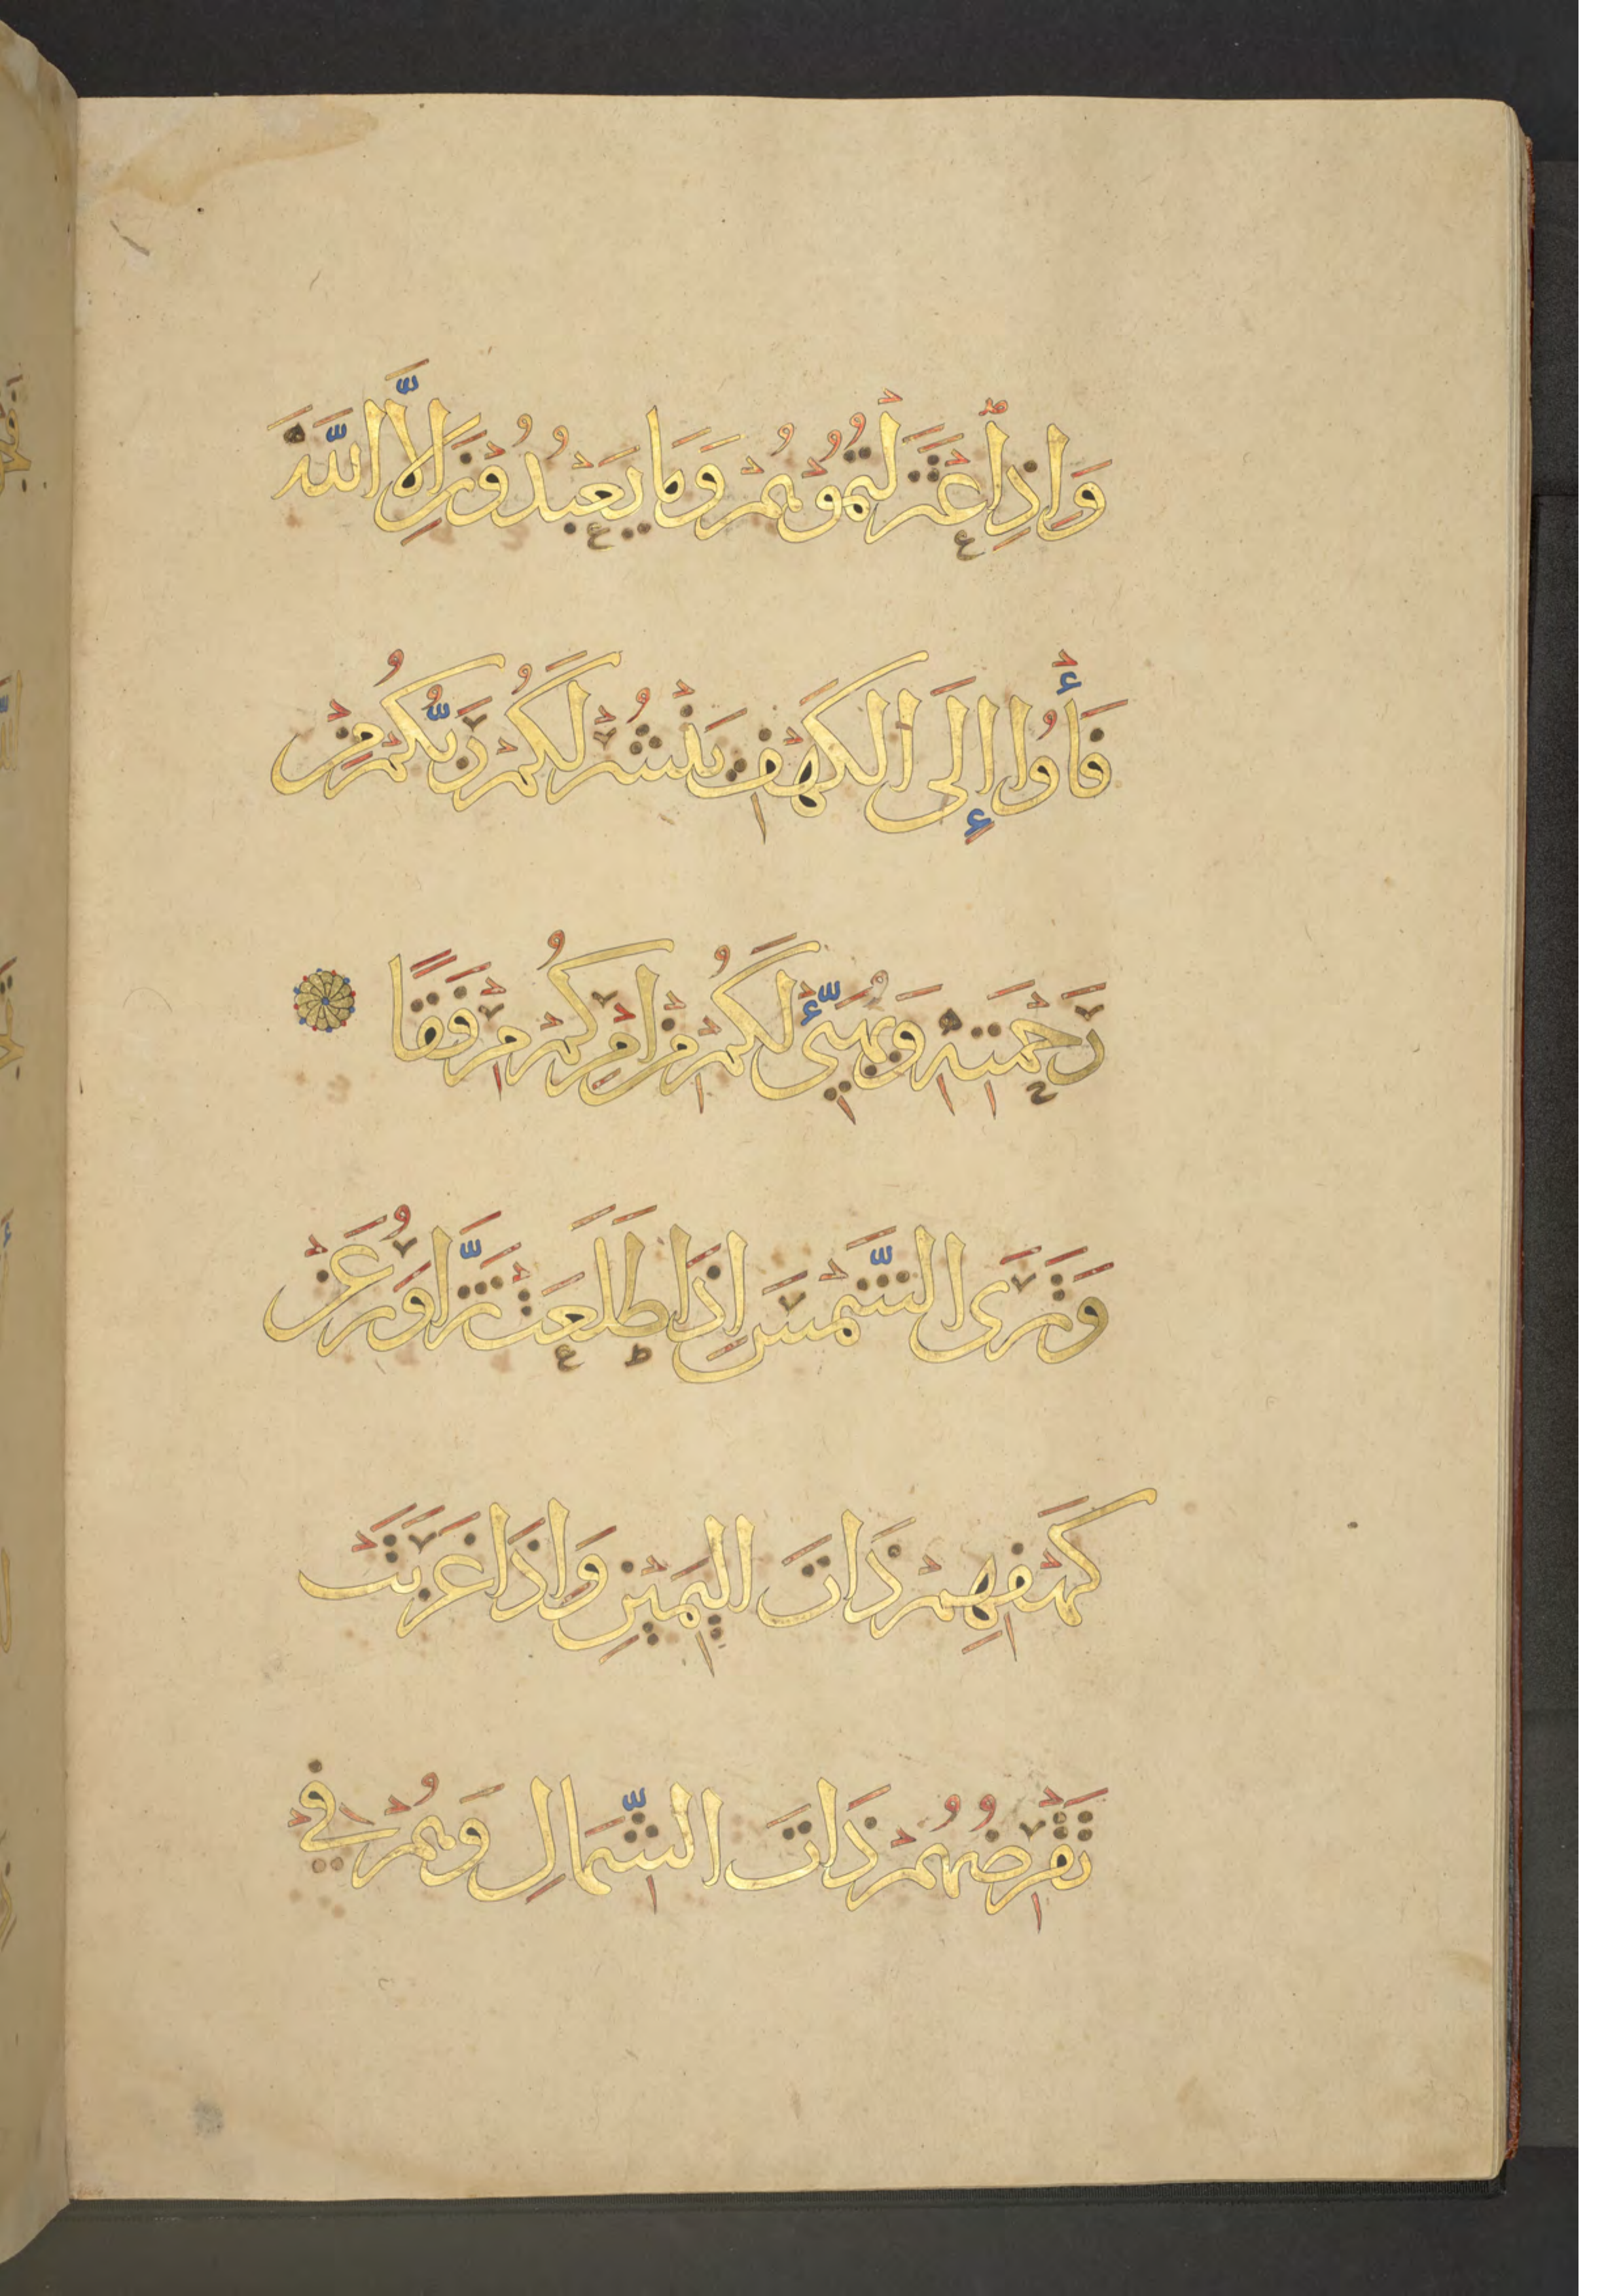 وَاِذِ اعْتَزَلْتُمُوهُمْ وَمَا يَعْبُدُونَ اِلَّا اللّٰهَ
فَأْوُا إِلَى الْكَهْفِ يَنْشُرْ لَكُمْ رَبُّكُمْ مِنْ
رَحْمَتِهِ وَيُهَيِّئْ لَكُمْ مِنْ اَمْرِكُمْ مِرْفَقًا
وَتَرَى الشَّمْسَ اِذَا طَلَعَتْ تَزَّاوَرُ عَنْ
كَهْفِهِمْ ذَاتَ الْيَمِينِ وَاِذَا غَرَبَتْ
تَقْرِضُهُمْ ذَاتَ الشِّمَالِ وَهُمْ فِي